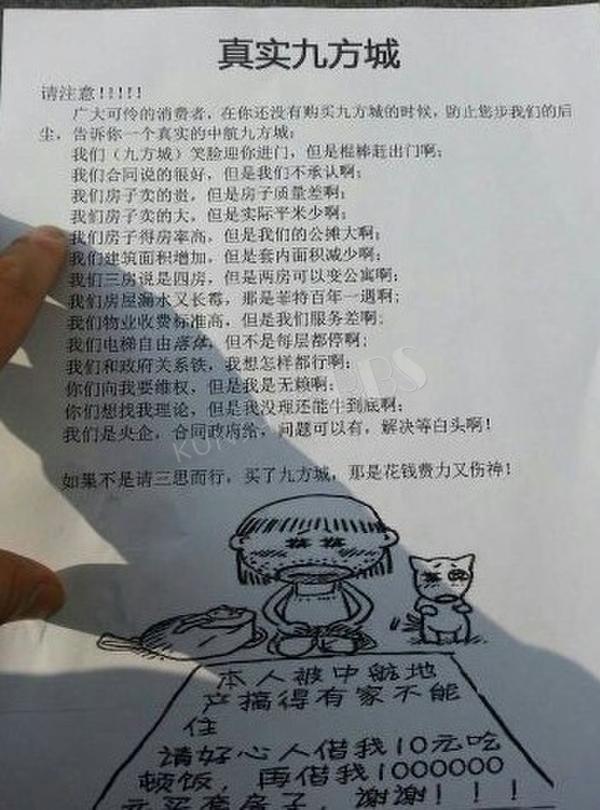 真实九方城
请注意!!!!!
广大可伶的消费者，在你还没有购买九方城的时候，防止您步我们的后
尘，告诉你一个真实的中航九方城：
我们（九方城）笑脸迎你进门，但是棍棒赶出门啊；
我们合同说的很好，但是我们不承认啊；
我们房子卖的贵，但是房子质量差啊；
我们房子卖的大，但是实际平米少啊；
我们房子得房率高，但是我们的公摊大啊；
我们建筑面积增加，但是套内面积减少啊；
我们三房说是四房，但是两房可以变公寓啊；
我们房屋漏水又长霉，那是菲特百年一遇啊；
我们物业收费标准高，但是我们服务差啊；
我们电梯自由落体，但不是每层都停啊；
我们和政府关系铁，我想怎样都行啊；
你们向我要维权，但是我是无赖啊；
你们想找我理论，但是我没理还能牛到底啊；
我们是央企，合同政府给，问题可以有，解决等白头啊！
如果不是请三思而行，买了九方城，那是花钱费力又伤神！
本人被中航地
产搞得有家不能
住
请好心人借我10元吃
顿饭，再借我1000000
元买套房子，谢谢！！！